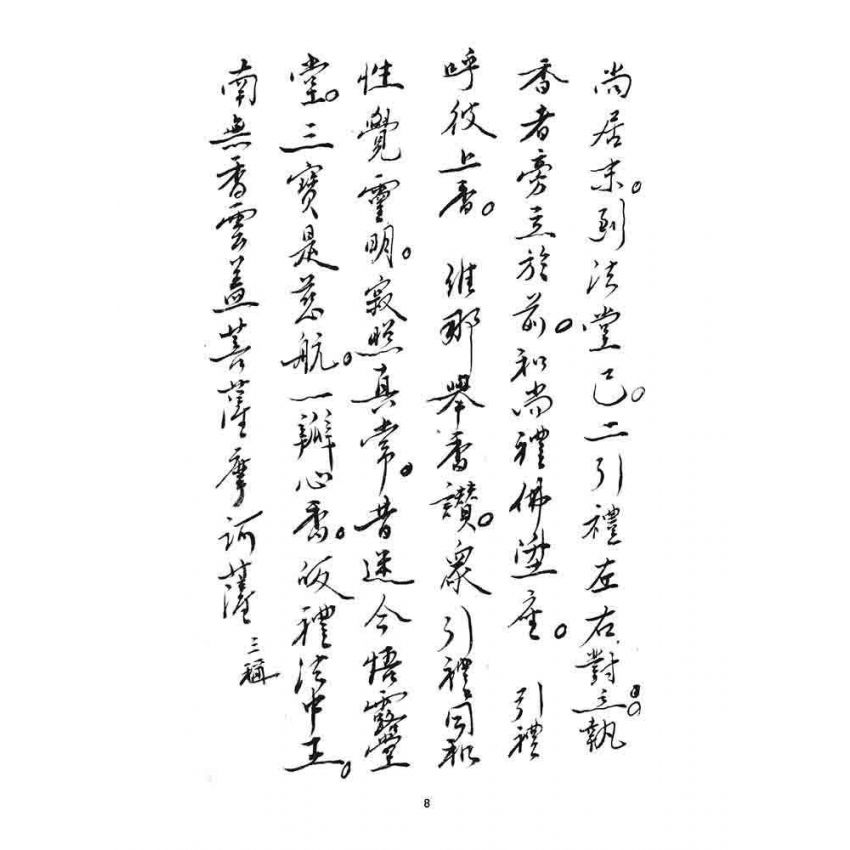 尚居末。到法堂已。二引禮左右對立。執
香者旁立於前。和尚禮佛陞座。 引禮
呼彼上香。 維那舉香讚。眾引禮同和
性覺靈明。寂照真常。昔迷今悟露堂
堂。三寶是慈航。一瓣心香。皈禮法中王。
南無香雲蓋菩薩摩訶薩 三稱
8